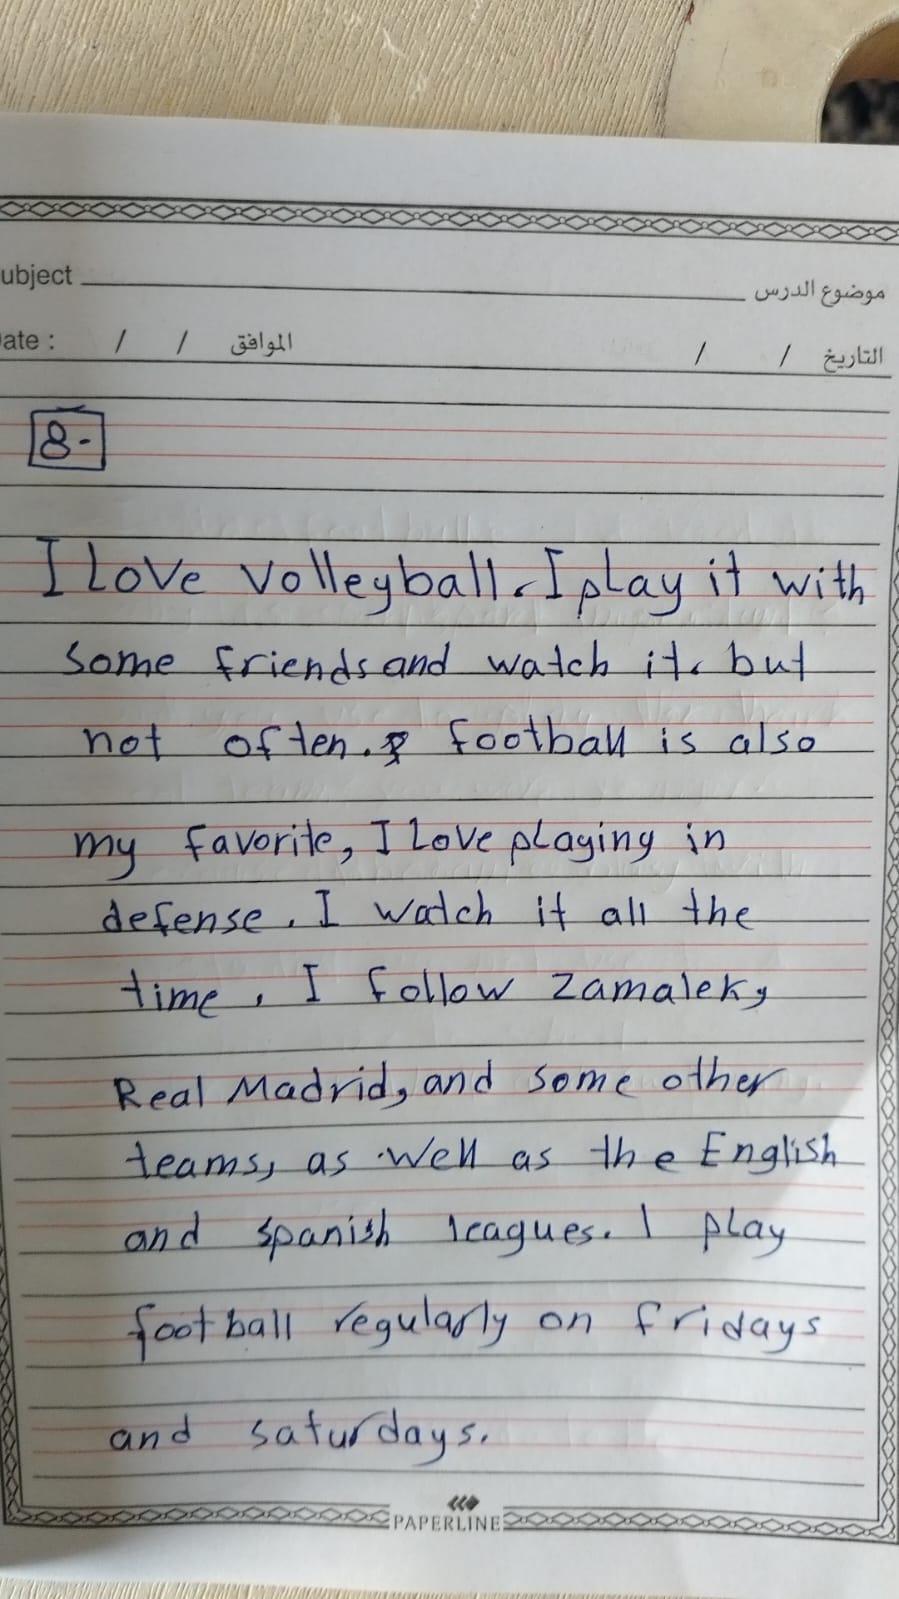 ubject موضوع الدرس
ate : / / الموافق / / التاريخ
8-
I Love volleyball. I play it with
some friends and watch it. but
not often. football is also
my favorite, I Love playing in
defense. I watch it all the
time, I follow Zamalek,
Real Madrid, and some other
teams, as well as the English
and spanish leagues. I play
football regularly on fridays
and saturdays.
PAPERLINE